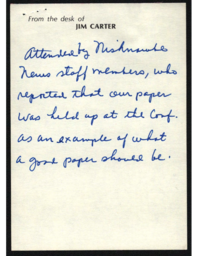 From the desk of
JIM CARTER
Attended by Mishawaka
News staff members, who
reported that our paper
was held up at the Conf.
as an example of what
a good paper should be.